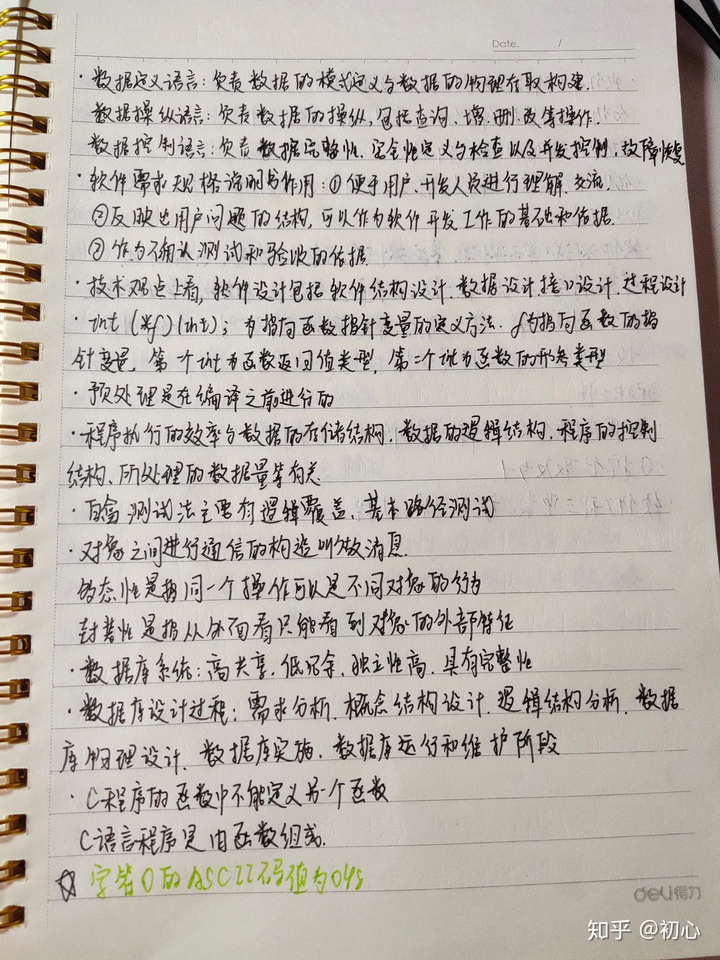 Date. /
· 数据定义语言：负责数据的模式定义与数据的物理存取构建.
数据操纵语言：负责数据的操纵，包括查询、增、删、改等操作.
数据控制语言：负责数据完整性、安全性定义与检查以及并发控制、故障恢复
· 软件需求规格说明书作用：①便于用户、开发人员进行理解、交流.
②反映出用户问题的结构，可以作为软件开发工作的基础和依据.
③作为确认测试和验收的依据.
· 技术观点上看，软件设计包括软件结构设计、数据设计、接口设计、过程设计
· int (*f)(int)；为指向函数指针变量的定义方法. f为指向函数的指
针变量，第一个int为函数返回值类型，第二个int为函数的形参类型
· 预处理是在编译之前进行的
· 程序执行的效率与数据的存储结构、数据的逻辑结构、程序的控制
结构、所处理的数据量等有关.
· 白盒测试法主要有逻辑覆盖、基本路径测试
· 对象之间进行通信的构造叫做消息.
多态性是指同一个操作可以是不同对象的行为
封装性是指从外面看只能看到对象的外部特征
· 数据库系统：高共享、低冗余、独立性高、具有完整性
· 数据库设计过程：需求分析、概念结构设计、逻辑结构分析、数据
库物理设计、数据库实施、数据库运行和维护阶段
· C程序的函数中不能定义另一个函数
C语言程序是由函数组成.
☆ 字符0的ASCII码值为048
deli得力
知乎 @初心